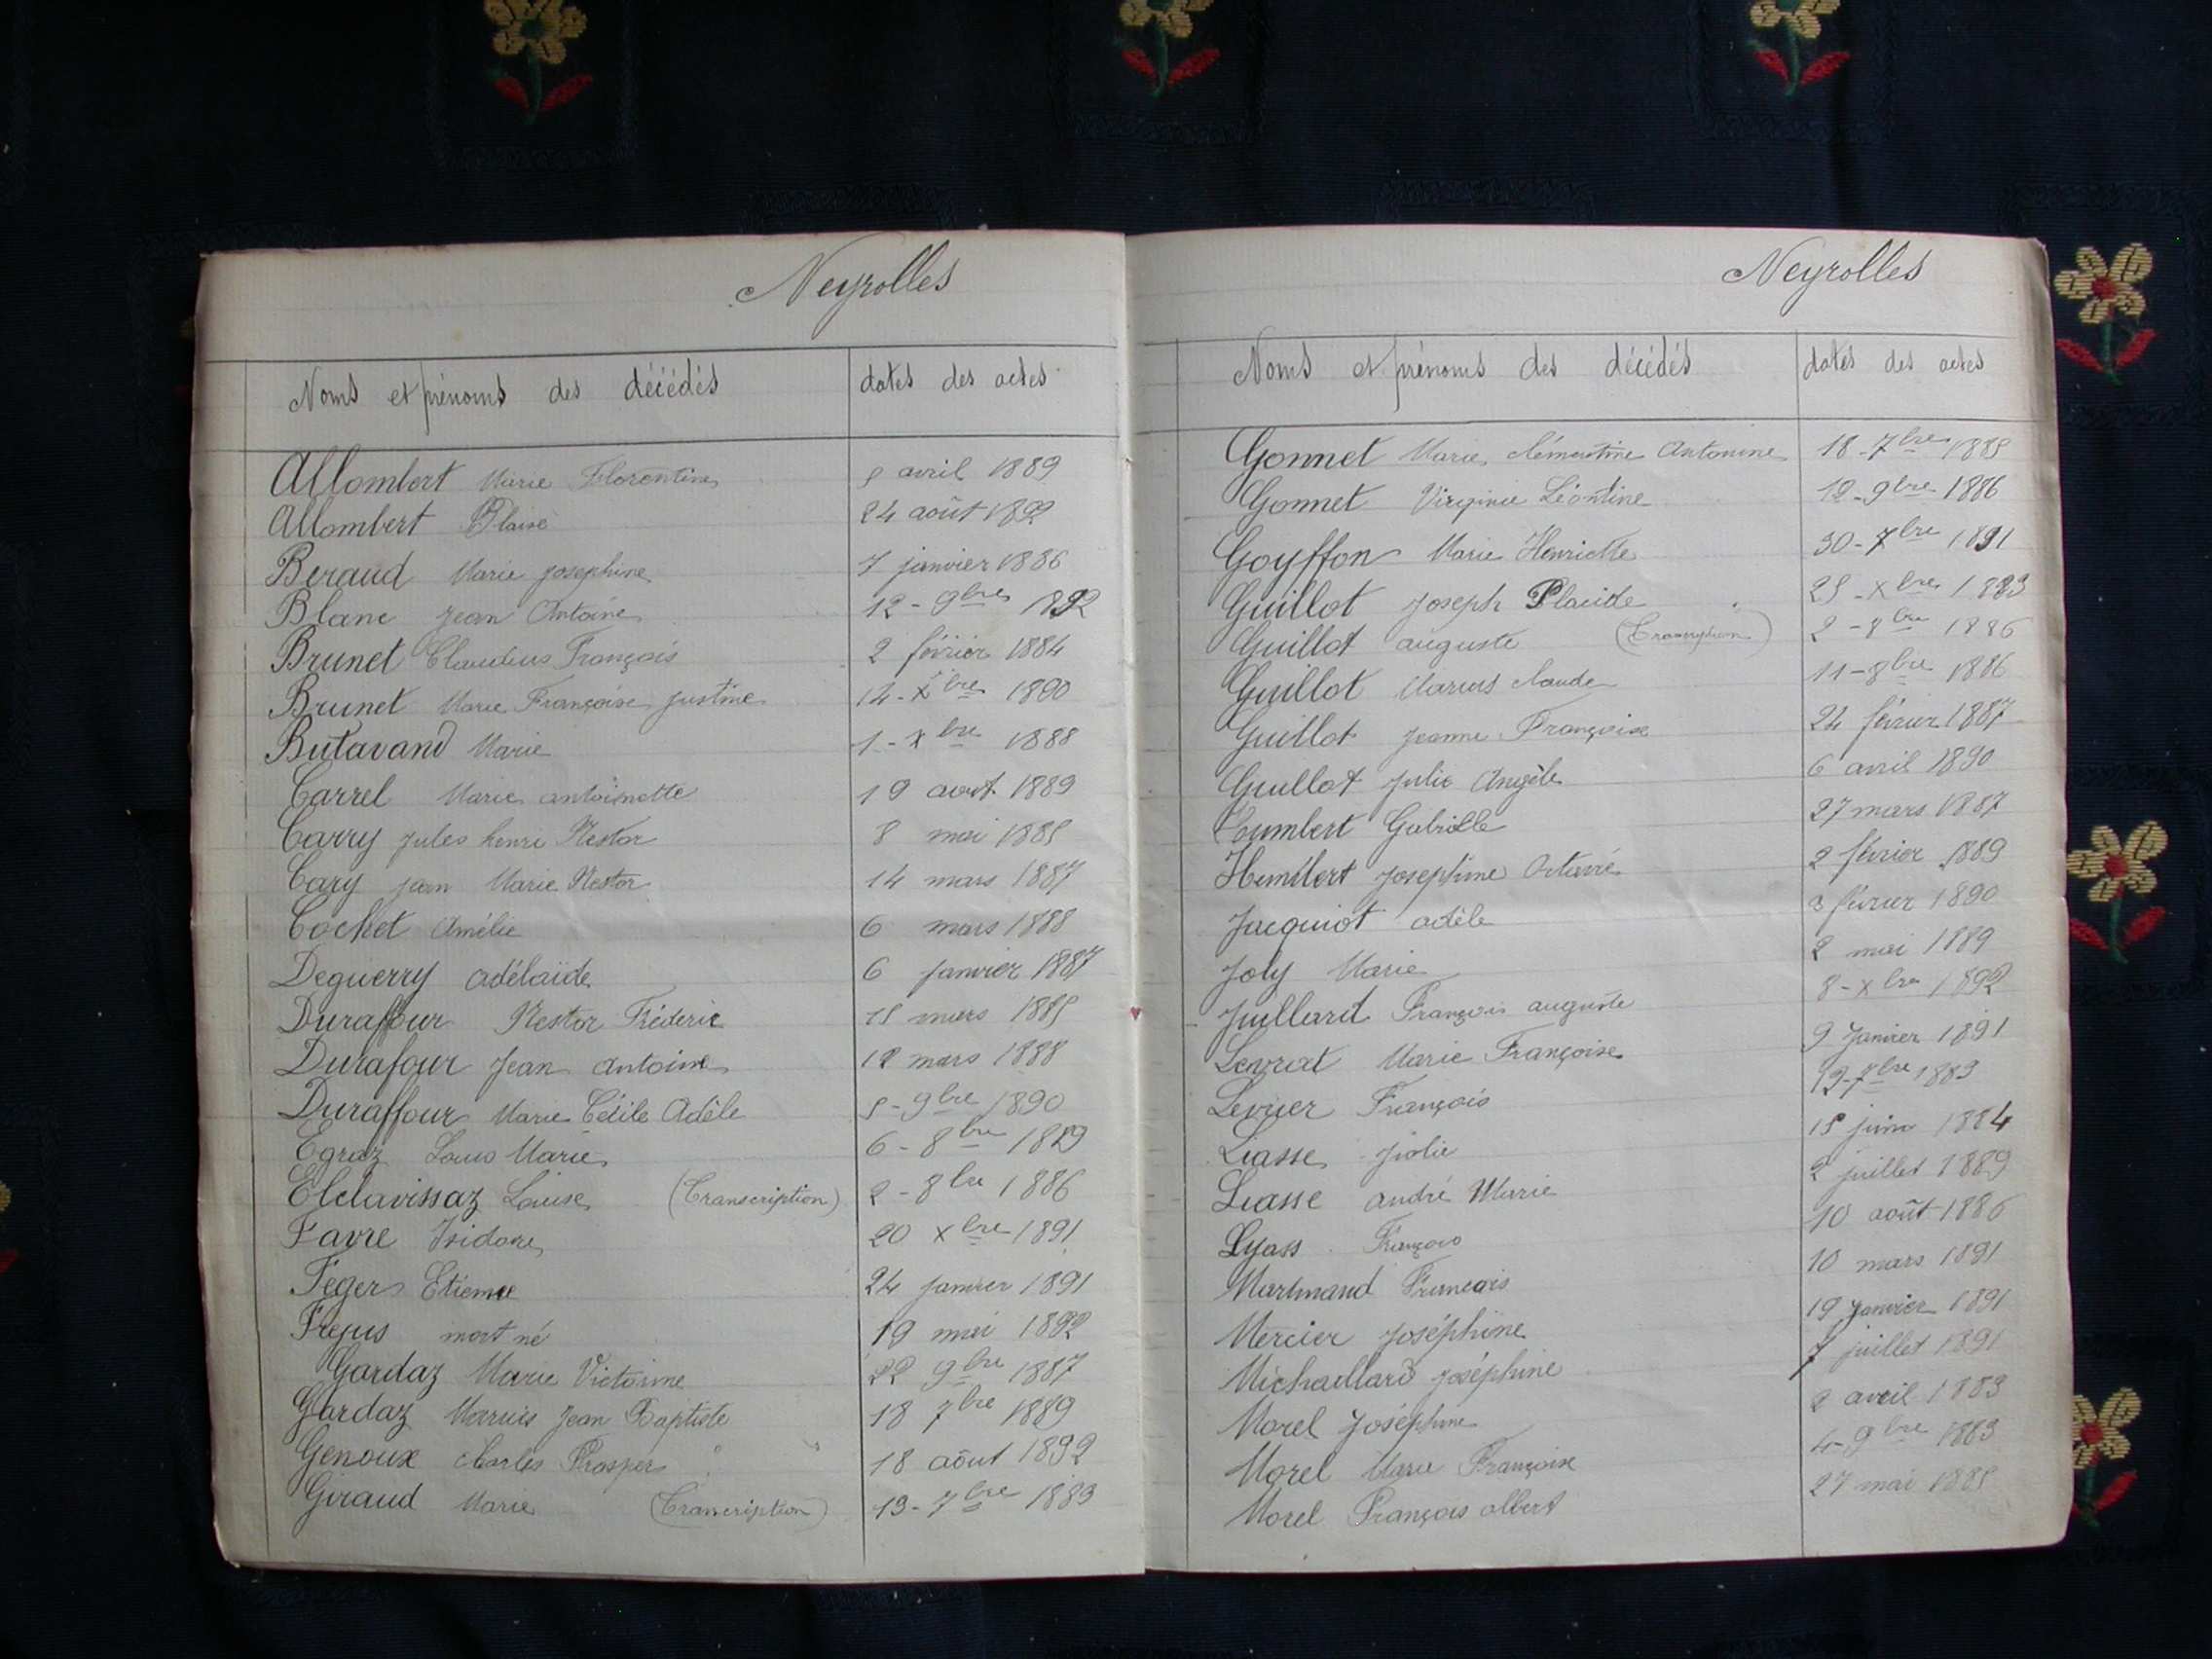 Neyrolles
Noms et prénoms des décédés dates des actes
Allombert Marie Florentine 5 avril 1889
Allombert Blaise 24 août 1892
Beraud Marie josephine 7 janvier 1886
Blanc Jean Antoine 12 - 9bre 1892
Brunet Claudius François 2 février 1884
Brunet Marie Françoise justine 14 - Xbre 1890
Butavand Marie 1 - Xbre 1888
Carrel Marie antoinette 19 aout 1889
Carry jules henri Nestor 8 mai 1885
Cary jean Marie Nestor 14 mars 1887
Cochet Amélie 6 mars 1888
Deguerry adélaïde 6 janvier 1887
Duraffour Nestor Fréderic 15 mars 1885
Durafour Jean antoine 12 mars 1888
Duraffour Marie Cécile Adèle 5 - 9bre 1890
Egraz Louis Marie 6 - 8bre 1889
Elclavissaz Louise (Transcription) 2 - 8bre 1886
Favre Isidore 20 Xbre 1891
Feger Etienne 24 janvier 1891
Frejus mort né 19 mai 1892
Gardaz Marie Victorine 22 9bre 1887
Gardaz Marius Jean Baptiste 18 7bre 1889
Genoux charles Prosper 18 aôut 1892
Giraud Marie (Transcription) 13 - 7bre 1883
Neyrolles
Noms et prénoms des décédés dates des actes
Gonnet Marie clémentine Antonine 18 - 7bre 1885
Gonnet Virginie Léontine 12 - 9bre 1886
Goyffon Marie Henriette 30 - 7bre 1891
Guillot joseph Placide 25 - Xbre 1883
Guillot auguste (Transcription) 2 - 8bre 1886
Guillot Marius claude 11 - 8bre 1886
Guillot jeanne Françoise 24 février 1887
Guillot julie Angèle 6 avril 1890
Gabrielle 27 mars 1887
Humbert josephine Octavie 2 février 1889
Jacquiot adèle février 1890
Joly Marie 2 mai 1889
Juillard François auguste 8 - Xbre 1892
Levrat Marie Françoise 9 janvier 1891
Levrier François bre 1883
Liasse jiolie 15 juin 1884
Liasse andré Marie 2 juillet 1889
Lyass François 10 août 1886
Martinand François 10 mars 1891
Mercier joséphine 19 janvier 1891
Michaillard joséphine 7 juillet 1891
Morel joséphine 2 avril 1883
Morel Marie Françoise 4 - 9bre 1883
Morel François albert 27 mai 1885